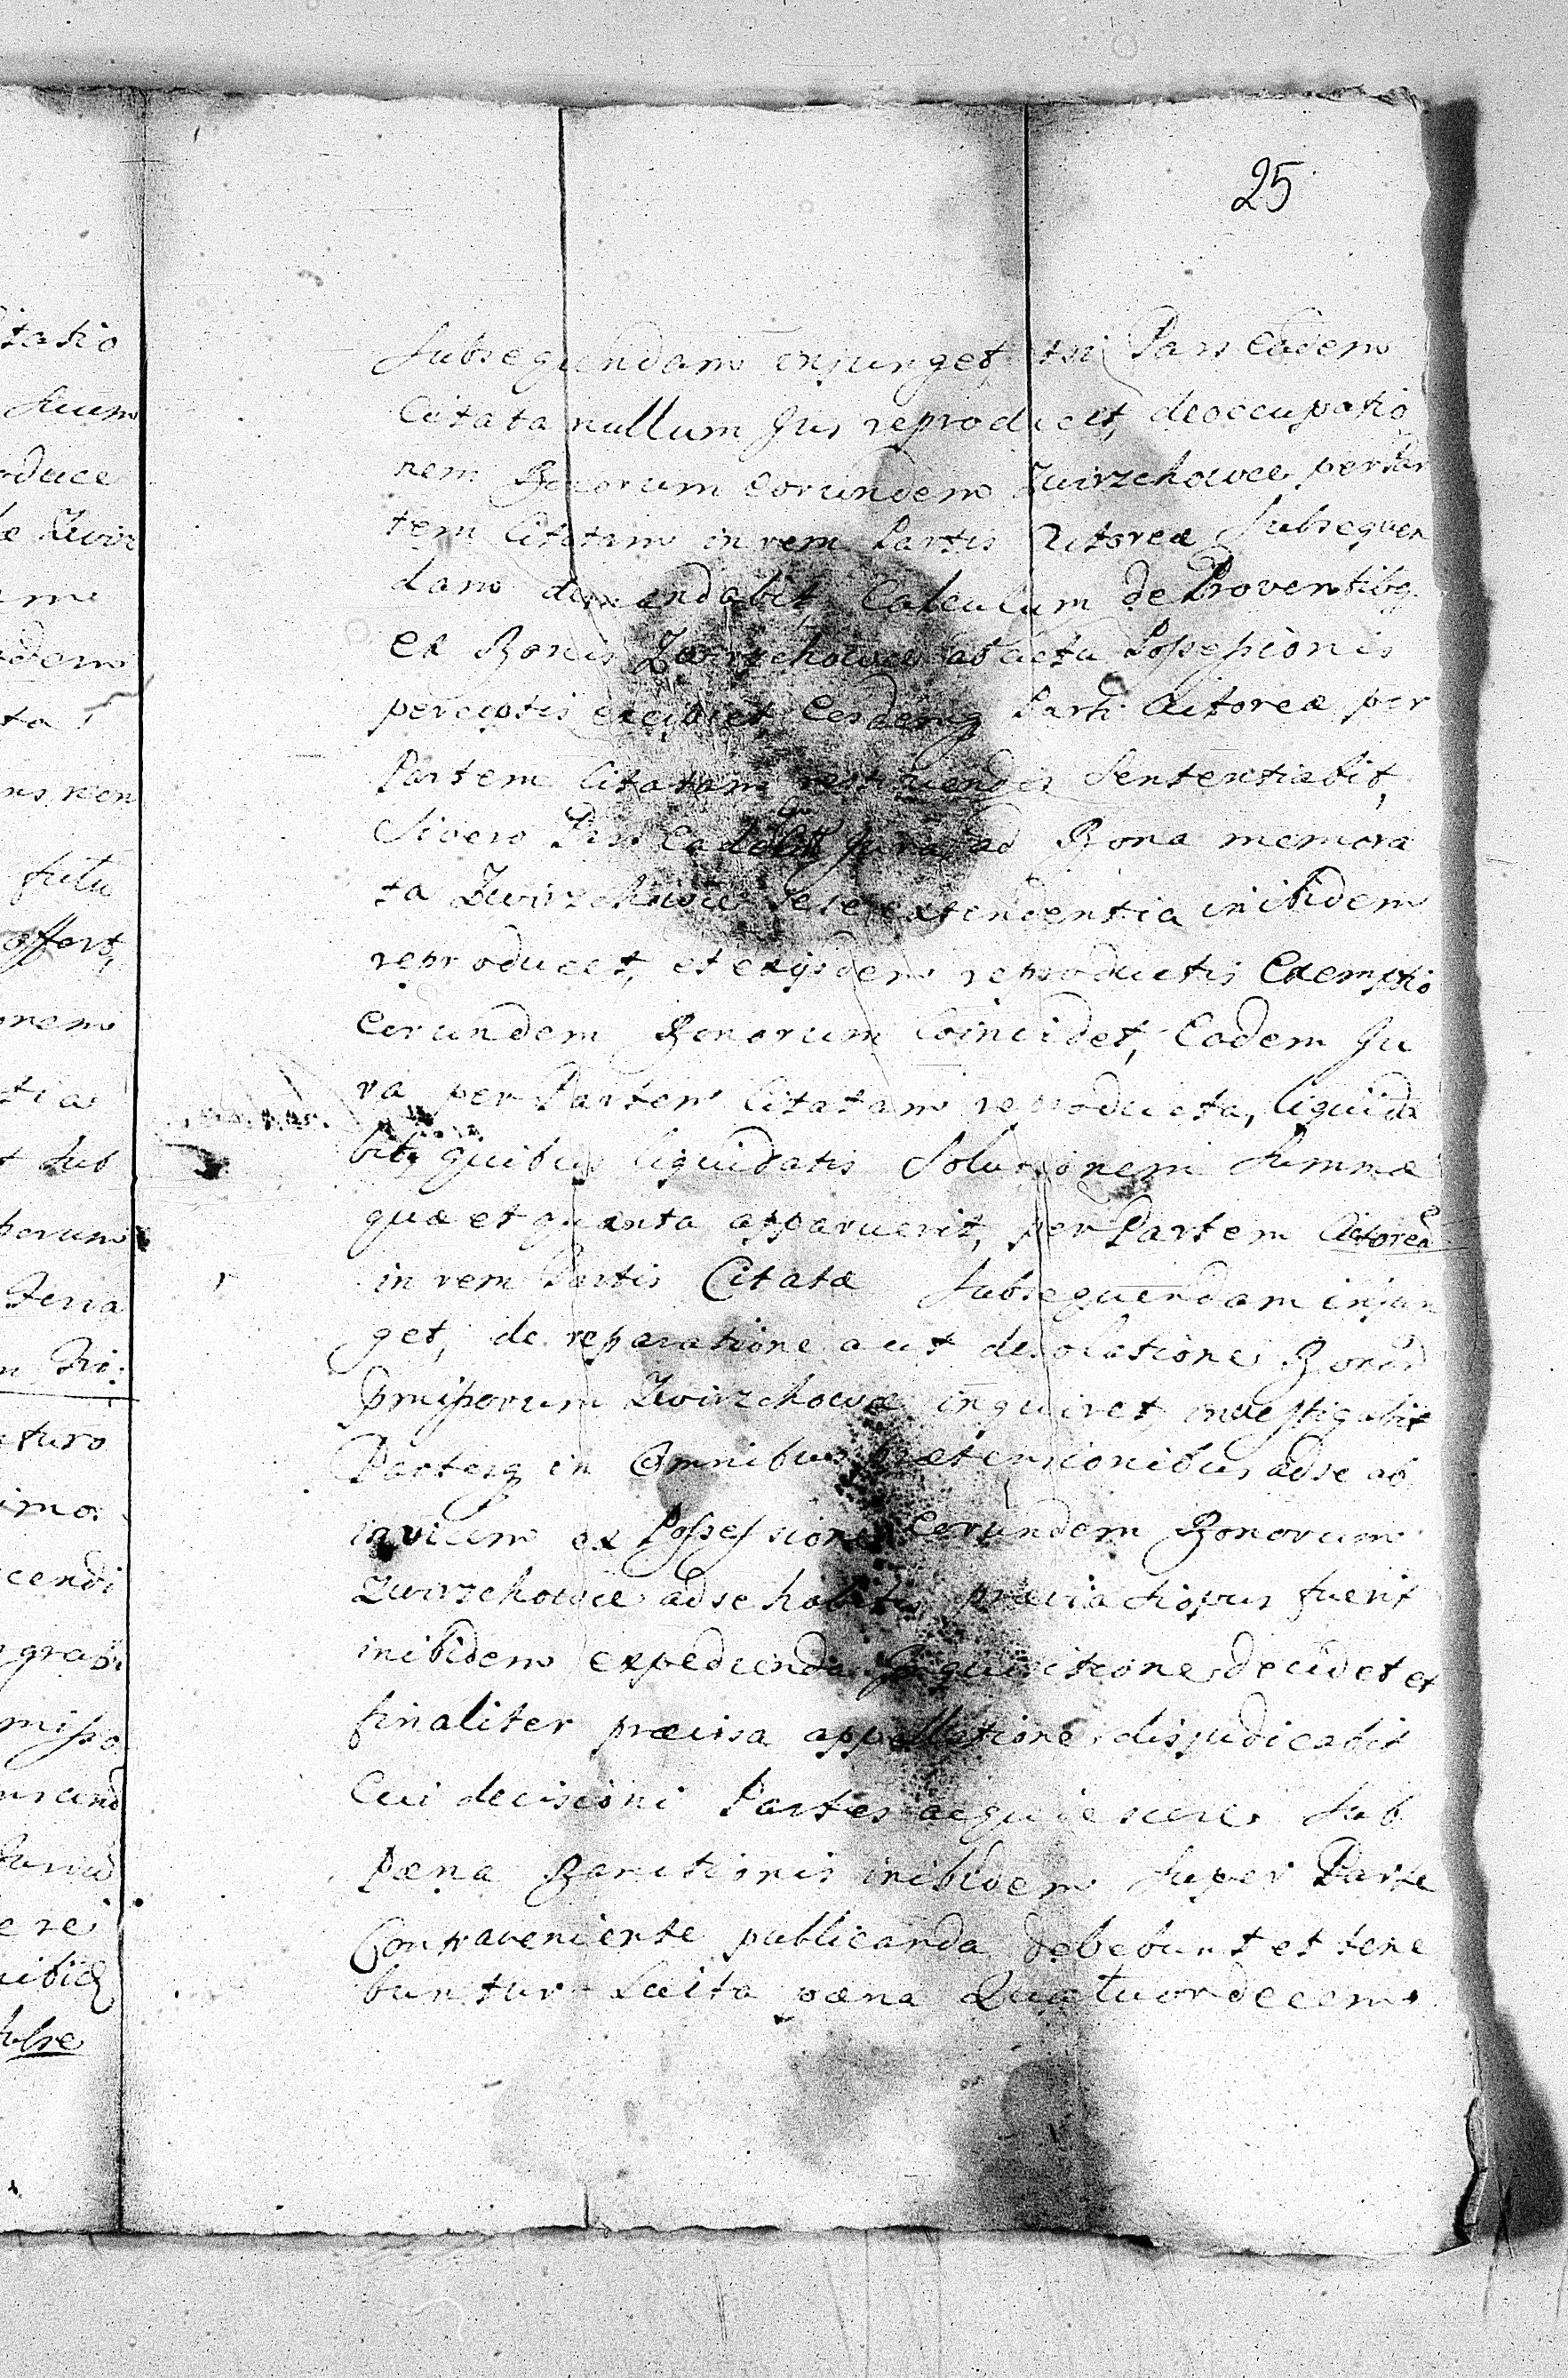 25
Subsequendam injunget, et si Pars Eadem
Citata nullum Jus reproducet, deoccupatio
nem Bonorum eorundem Zwirzchowce per Par
tem Citatam in rem Partis Actoreæ Subsequen
dam demandabit, Calculum de Proventibq
ex Bonis Zwirzchowce ab actu Possessionis
perceptis excipiet, Eosdemq Parti Actoreæ per
Partem Citatam restituendos Sententiabit,
Si vero Pars Eadem Jura ad Bona memora
ta Zwirzchowce sese extendentia inibidem
reproducet, et ex ijsdem reproductis Exemptio
Eorundem Bonorum Coincidet, Eadem Ju
ra per Partem Citatam reproducta, liquida
bit, quibus liquidatis Solutionem Summæ
quæ et quanta apparuerit, per Partem Actorea
in rem Partis Citatæ Subsequendam injun
get, de reparatione aut desolatione Bonor
pmissorum Zwirzchowce inquiret, investigabit
Partesq in Omnibus prætensionibus ad se ab
invicem ex Possessione Eorundem Bonorum
Zwirzchowce ad se habitis, prævia si opus fuerit
inibidem expedienda Inquisitione decidet et
finaliter præcisa appellatione disjudicabit
Cui decisioni Partes acquiescere Sub
pæna Banitionis inibidem Super Parte
Contraveniente publicanda debebunt et tene
buntur Lucita pæna Quatuordecem
tatio
Suum
oduce
Zwir
dem
ta
non
futu
offert,
onem
tia
Sub
Terra
turo
imo
cendi
misso
ere